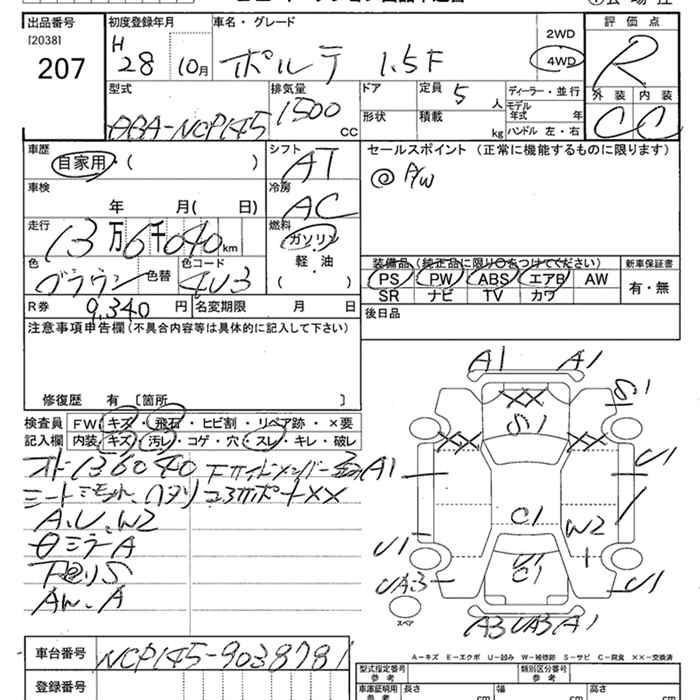 出品番号
[2038]
207
初度登録年月
H 28 10月
車名・グレード
ポルテ 1.5F
2WD
4WD
評価点
R
外装 内装
C C
型式
DBA-NCP145
排気量
1500 CC
ドア
形状
定員 5 人
積載 kg
ディーラー・並行
モデル年式 年
ハンドル 左・右
車歴
自家用 ( )
シフト
AT
車検
年 月( 日)
冷房
AC
走行
13万6千040km
燃料
ガソリン
軽・油
( )
色
ブラウン
色替
色コード
4U3
R券 9,340 円
名変期限 月 日
セールスポイント (正常に機能するものに限ります)
◎ P/W
装備品 (純正品に限り○をつけてください)
PS PW ABS エアB AW
SR ナビ TV カワ
新車保証書
有・無
後日品
注意事項申告欄(不具合内容等は具体的に記入して下さい)
修復歴 有 [箇所 ]
検査員記入欄
FW キズ・飛石・ヒビ割・リペア跡・×要
内装 キズ・汚レ・コゲ・穴・スレ・キレ・破レ
136040
A、U、W2
ミラーA
A1 A1
S1
XX
S1
XX XX
A1 U1
C1
W2
U1
U1
C1
UA3 U1
A3 UA3 A1
スペア
A-キズ E-エクボ U-凹み W-補修跡 S-サビ C-腐食 XX-交換済
車台番号 NCP145-9038781
登録番号
型式指定番号
参考
類別区分番号
参考
車庫証明用
参考
長さ cm
幅 cm
高さ cm